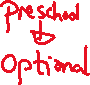 Preschool
Optional